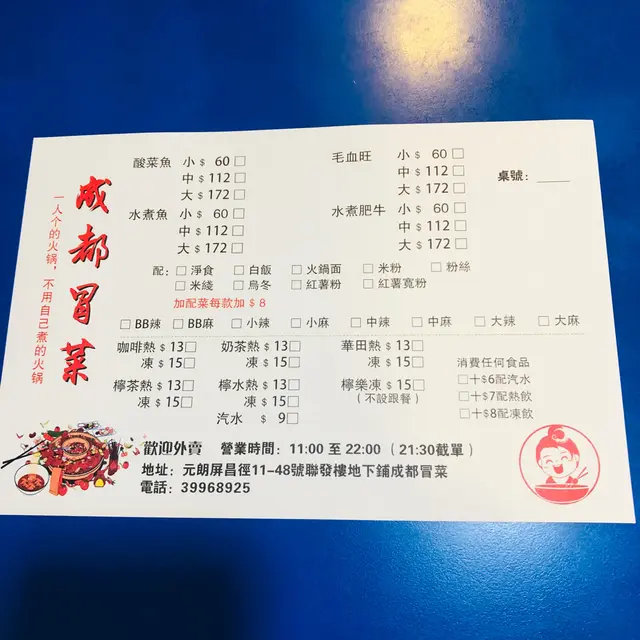 成都冒菜
一人个的火锅，不用自己煮的火锅
酸菜魚 小 $ 60 □
中 $ 112 □
大 $ 172 □
水煮魚 小 $ 60 □
中 $ 112 □
大 $ 172 □
毛血旺 小 $ 60 □
中 $ 112 □
大 $ 172 □
水煮肥牛 小 $ 60 □
中 $ 112 □
大 $ 172 □
桌號：____
配： □ 淨食 □ 白飯 □ 火鍋面 □ 米粉 □ 粉絲
□ 米綫 □ 烏冬 □ 紅薯粉 □ 紅薯寬粉
加配菜每款加 $ 8
□ BB辣 □ BB麻 □ 小辣 □ 小麻 □ 中辣 □ 中麻 □ 大辣 □ 大麻
咖啡熱 $ 13□ 奶茶熱 $ 13□ 華田熱 $ 13□
凍 $ 15□ 凍 $ 15□ 凍 $ 15□
檸茶熱 $ 13□ 檸水熱 $ 13□ 檸樂凍 $ 15□
凍 $ 15□ 凍 $ 15□ （不設跟餐）
汽水 $ 9□
消費任何食品
□十$6配汽水
□十$7配熱飲
□十$8配凍飲
歡迎外賣 營業時間：11:00 至 22:00（21:30截單）
地址：元朗屏昌徑11-48號聯發樓地下鋪成都冒菜
電話：39968925